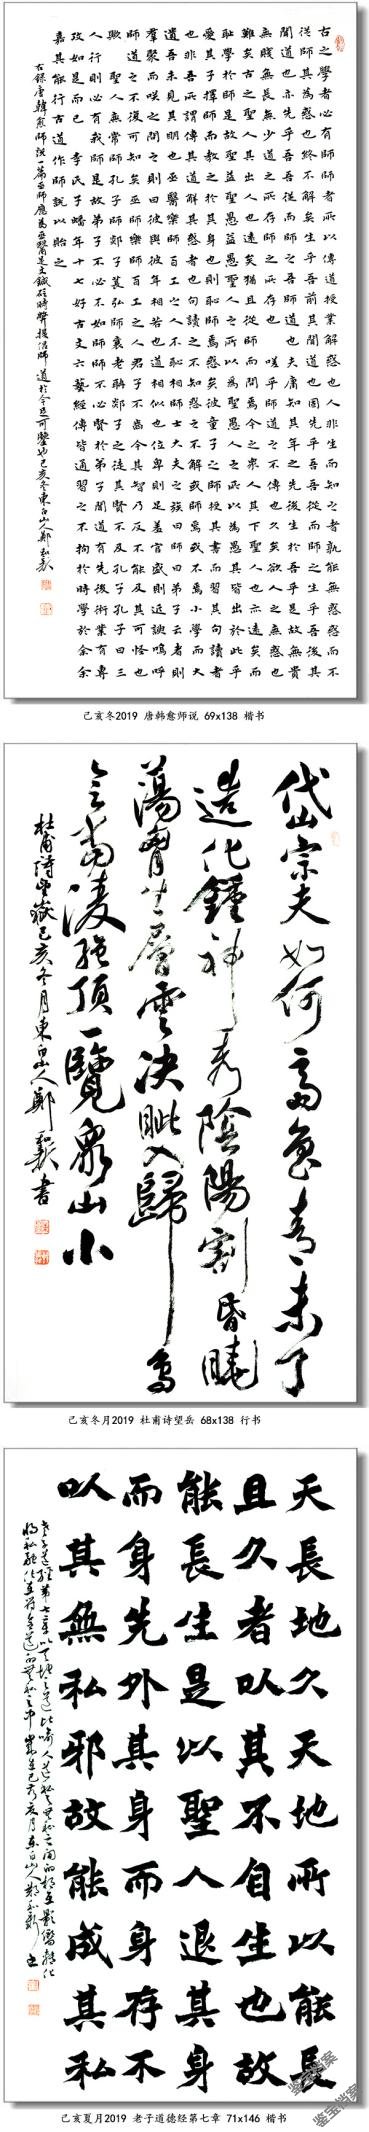 古之學者必有師師者所以傳道授業解惑也人非生而知之者孰能無惑惑而不
從師其為惑也終不解矣生乎吾前其聞道也固先乎吾吾從而師之生乎吾後其
聞道也亦先乎吾吾從而師之吾師道也夫庸知其年之先後生於吾乎是故無貴
無賤無長無少道之所存師之所存也 嗟乎師道之不傳也久矣欲人之無惑也
難矣古之聖人其出人也遠矣猶且從師而問焉今之衆人其下聖人也亦遠矣而
恥學於師是故聖益聖愚益愚聖人之所以為聖愚人之所以為愚其皆出於此乎
愛其子擇師而教之於其身也則恥師焉惑矣彼童子之師授其書而習其句讀者
也非吾所謂傳其道解其惑者也句讀之不知惑之不解或師焉或不焉小學而大
遺吾未見其明也巫醫樂師百工之人不恥相師士大夫之族曰師曰弟子云者則
羣聚而笑之問之則曰彼與彼年相若也道相似也位卑則足羞官盛則近諛嗚呼
師道之不復可知矣巫醫樂師百工之人君子不齒今其智乃反不能及其可怪也
歟 聖人無常師孔子師郯子萇弘師襄老聃郯子之徒其賢不及孔子孔子曰三
人行則必有我師是故弟子不必不如師師不必賢於弟子聞道有先後術業有專
攻如是而已 李氏子蟠年十七好古文六藝經傳皆通習之不拘於時學於余余
嘉其能行古道作師說以貽之
右錄唐韓愈師說一篇 道於今足可鑒也己亥冬東白山人鄭
己亥冬2019 唐韩愈师说 69x138 楷书
岱宗夫如何齊魯青未了
造化鍾神秀陰陽割昏曉
蕩胸生層雲決眦入歸鳥
會當凌絕頂一覽衆山小
杜甫詩望嶽己亥冬月東白山人鄭 書
己亥冬月2019 杜甫诗望岳 68x138 行书
天長地久天地所以能長
且久者以其不自生也故
能長生是以聖人退其身
而身先外其身而身存不
以其無私邪故能成其私
己亥夏月2019 老子道德经第七章 71x146 楷书
鉴宝档案